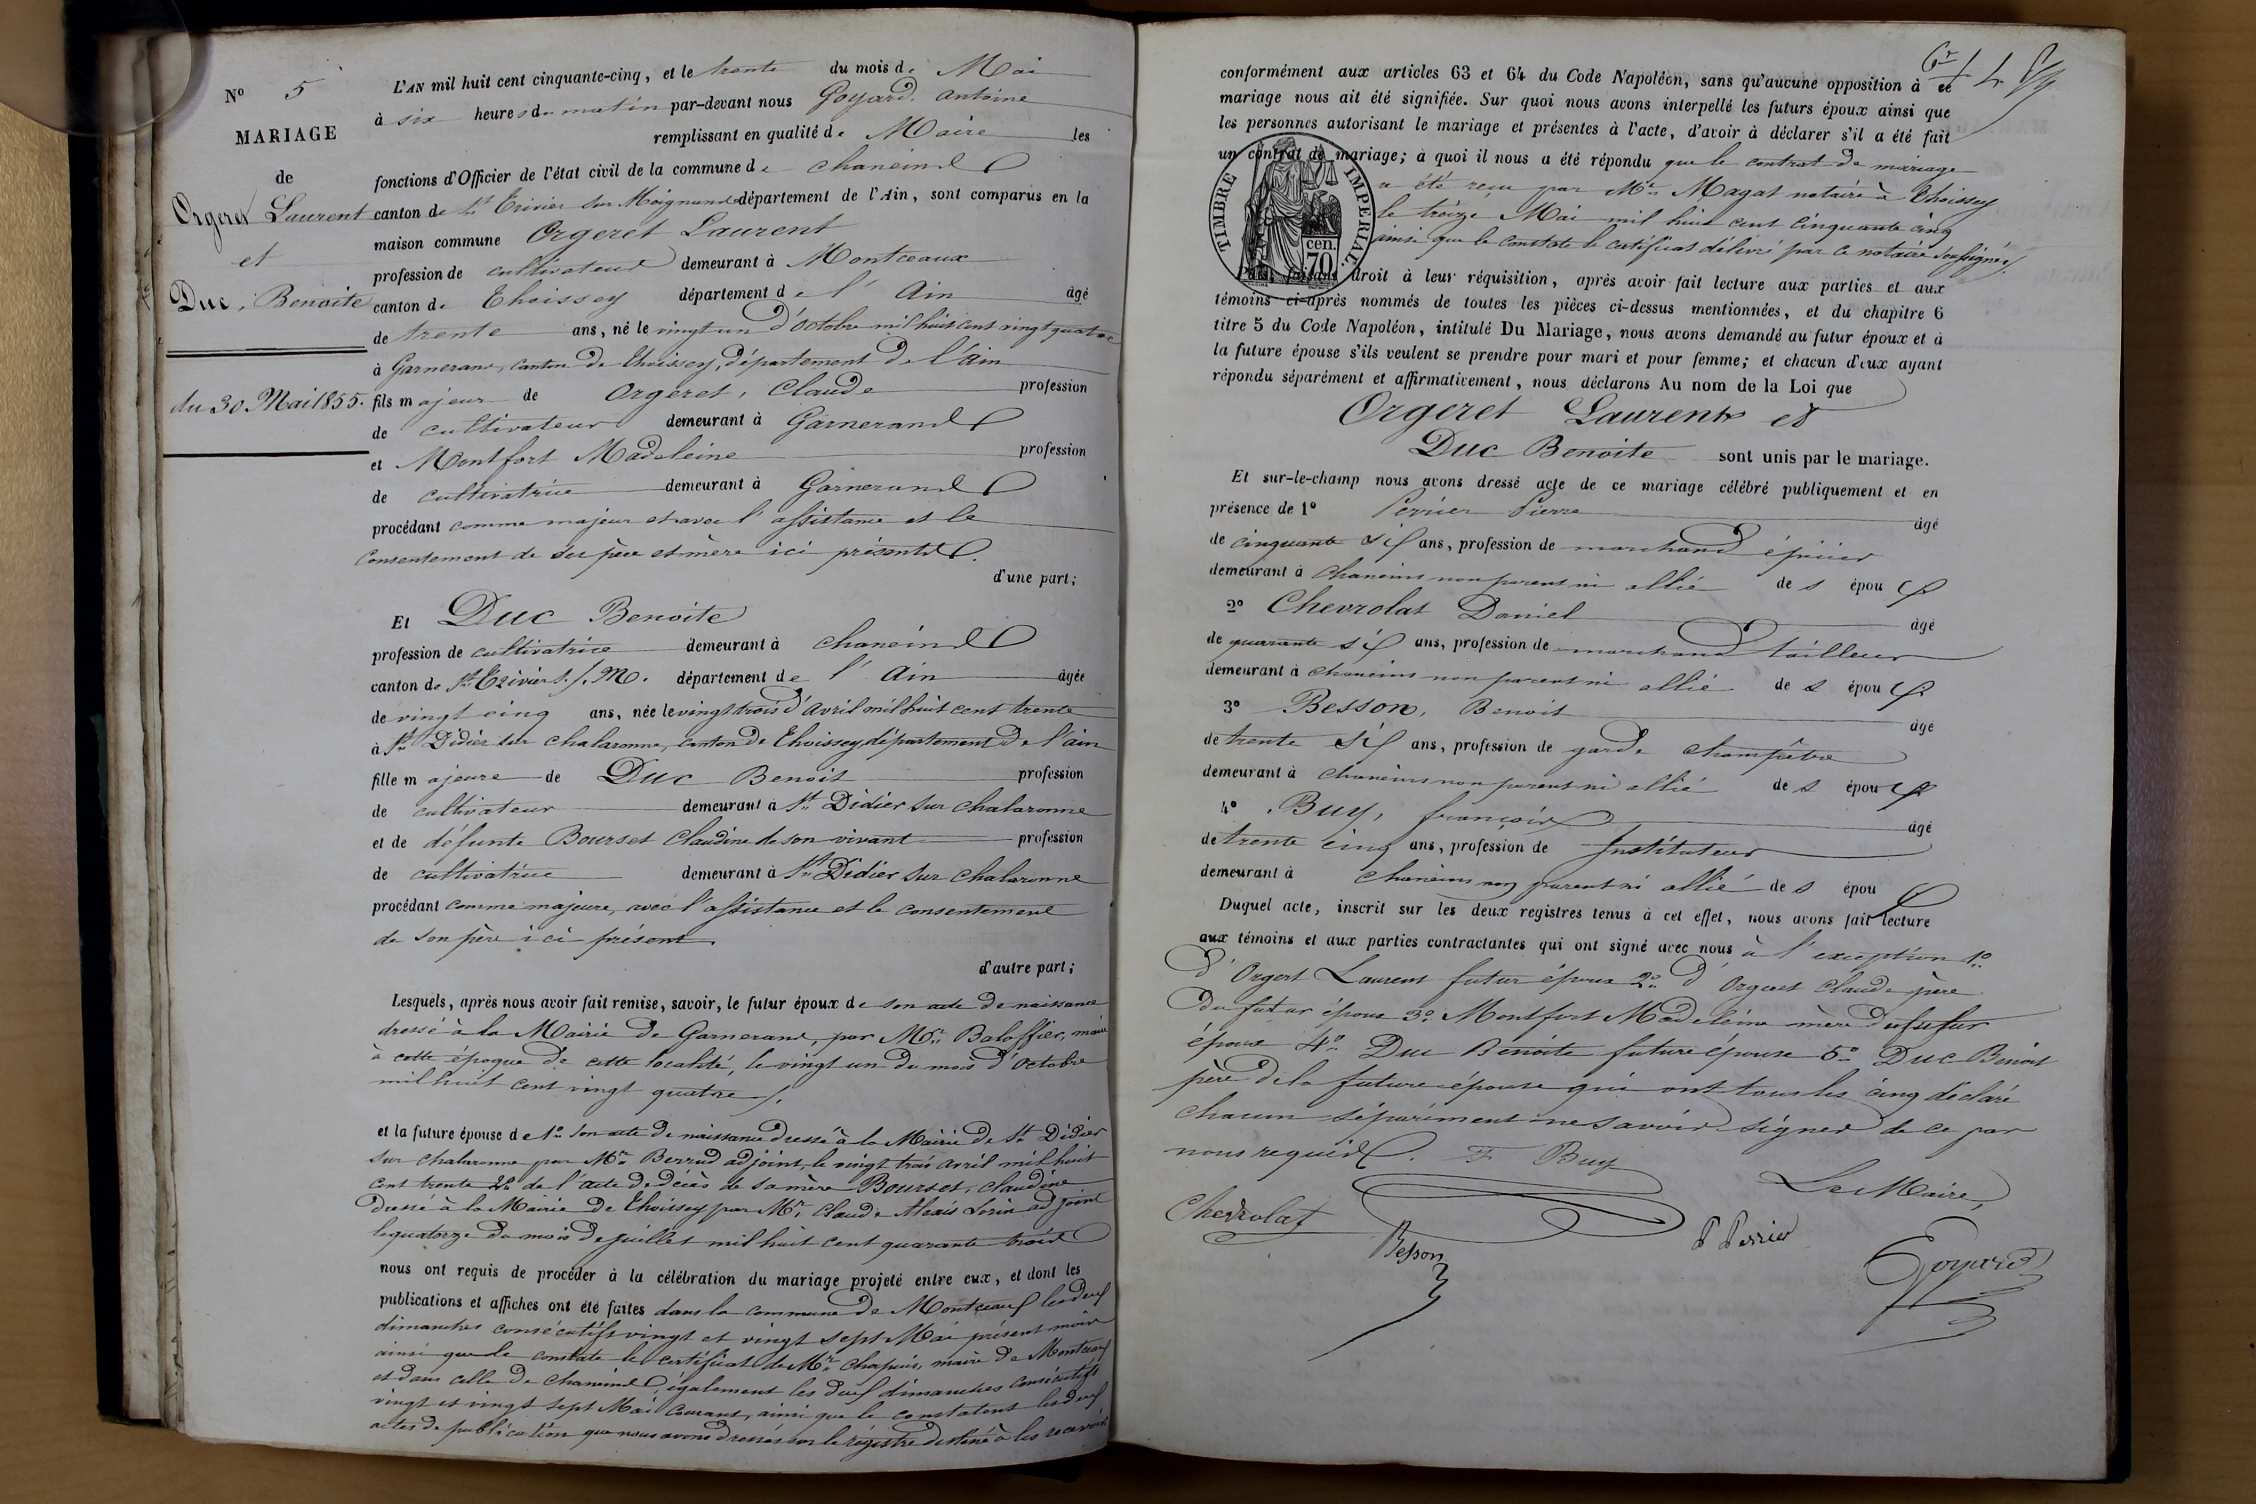 N° 5
MARIAGE
de
Orgeret Laurent
et
Duc, Benoite
du 30 Mai 1855.
L'AN mil huit cent cinquante-cinq, et le trente du mois de Mai
à six heures du matin par-devant nous Goyard, antoine
remplissant en qualité de Maire les
fonctions d'Officier de l'état civil de la commune de chaneins
canton de St Trivier sur Moignans département de l'Ain, sont comparus en la
maison commune Orgeret Laurent
profession de cultivateur demeurant à Montceaux
canton de Thoissey département de l'Ain âgé
de trente ans, né le vingt un d'Octobre mil huit cent vingt quatre
à Garnerans, canton de Thoissey, département de l'ain
fils majeur de Orgeret, Claude profession
de cultivateur demeurant à Garnerans
et Montfort Madeleine profession
de cultivatrice demeurant à Garnerans
procédant comme majeur et avec l'assistance et le
consentement de ses père et mère ici présents.
d'une part;
Et Duc Benoite
profession de cultivatrice demeurant à chaneins
canton de St Trivier s./M. département de l'Ain âgée
de vingt cinq ans, née le vingt trois d'avril mil huit cent trente
à St Didier sur chalaronne, canton de Thoissey, département de l'ain
fille majeure de Duc Benoit profession
de cultivateur demeurant à St Didier sur chalaronne
et de défunte Bourset Claudine de son vivant profession
de cultivatrice demeurant à St Didier sur chalaronne
procédant comme majeure, avec l'assistance et le consentement
de son père ici présent.
d'autre part;
Lesquels, après nous avoir fait remise, savoir, le futur époux de son acte de naissance
dressé à la Mairie de Garnerans, par Mr. Baloffier, maire
à cette époque de cette localité, le vingt un du mois d'Octobre
mil huit cent vingt quatre.
et la future épouse de 1° son acte de naissance dressé à la Mairie de St Didier
sur chalaronne par Mr Berrud adjoint, le vingt trois avril mil huit
cent trente 2° de l'acte de décès de sa mère Bourset, claudine
dressé à la Mairie de Thoissey par Mr. Claude Alexis Lorin adjoint
le quatorze du mois de juillet mil huit cent quarante trois
nous ont requis de procéder à la célébration du mariage projeté entre eux, et dont les
publications et affiches ont été faites dans la commune de Montceaux les deux
dimanches consécutifs vingt et vingt sept Mai présent mois
ainsi que le constate le certificat de Mr. Chapuis, maire de Montceaux
et dans celle de chaneins, également les deux dimanches consécutifs
vingt et vingt sept Mai Courant, ainsi que le constatent les deux
actes de publication que nous avons dressés sur le registre destiné à les recevoir
conformément aux articles 63 et 64 du Code Napoléon, sans qu'aucune opposition à ce
mariage nous ait été signifiée. Sur quoi nous avons interpellé les futurs époux ainsi que
les personnes autorisant le mariage et présentes à l'acte, d'avoir à déclarer s'il a été fait
un contrat de mariage; à quoi il nous a été répondu que le contrat de mariage
a été reçu par Me. Magat notaire à Thoissey
le treize Mai mil huit cent cinquante cinq
ainsi que le constate le certificat délivré par ce notaire soussigné
TIMBRE IMPERIAL
70 cen.
Puis, faisant droit à leur réquisition, après avoir fait lecture aux parties et aux
témoins ci-après nommés de toutes les pièces ci-dessus mentionnées, et du chapitre 6
titre 5 du Code Napoléon, intitulé Du Mariage, nous avons demandé au futur époux et à
la future épouse s'ils veulent se prendre pour mari et pour femme; et chacun d'eux ayant
répondu séparément et affirmativement, nous déclarons Au nom de la Loi que
Orgeret Laurent et
Duc Benoite sont unis par le mariage.
Et sur-le-champ nous avons dressé acte de ce mariage célébré publiquement et en
présence de 1° Perrier Pierre âgé
de cinquante six ans, profession de marchand épicier
demeurant à chaneins non parent ni allié des époux
2° Chevrolat Daniel âgé
de quarante six ans, profession de marchand tailleur
demeurant à chaneins non parent ni allié des époux
3° Besson, Benoit âgé
de trente six ans, profession de garde champêtre
demeurant à chaneins non parent ni allié des époux
4° Buy, françois âgé
de trente cinq ans, profession de Instituteur
demeurant à chaneins non parent ni allié des époux
Duquel acte, inscrit sur les deux registres tenus à cet effet, nous avons fait lecture
aux témoins et aux parties contractantes qui ont signé avec nous à l'exception 1°
d'Orgert Laurent futur époux 2° d'Orgeret Claude père
du futur époux 3° Montfort Madeleine mère du futur
époux 4° Duc Benoite future épouse 5° Duc Benoit
père de la future épouse qui ont tous les cinq déclaré
chacun séparément ne savoir signer de ce par
nous requis. F Buy
Le Maire,
Chevrolat
Besson
P Perrier
Goyard